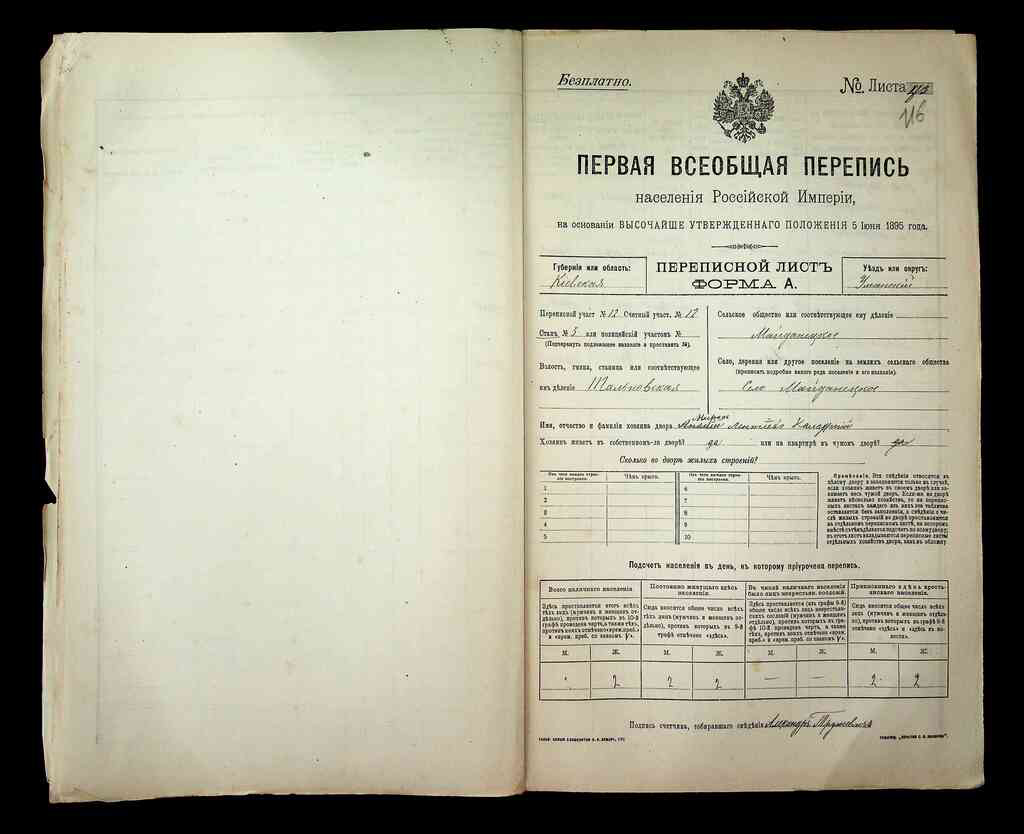 Безплатно.
№ Листа
116
ПЕРВАЯ ВСЕОБЩАЯ ПЕРЕПИСЬ
населенія Россійской Имперіи,
на основаніи ВЫСОЧАЙШЕ УТВЕРЖДЕННАГО ПОЛОЖЕНІЯ 5 Іюня 1895 года.
Губернія или область:
Кіевская
ПЕРЕПИСНОЙ ЛИСТЪ
ФОРМА А.
Уѣздъ или округъ:
Уманскій
Переписной участ. № 12 Счетный участ. № 12
Станъ № 5 или полицейскій участокъ №
(Подчеркнуть подлежащее названіе и проставить №).
Волость, гмина, станица или соотвѣтствующее
имъ дѣленіе Тальновская
Сельское общество или соотвѣтствующее ему дѣленіе
Майданецкое
Село, деревня или другое поселеніе на земляхъ сельскаго общества
(прописать подробно какого рода поселеніе и его названіе).
Село Майданецкое
Имя, отчество и фамилія хозяина двора
Хозяинъ живетъ въ собственномъ-ли дворѣ? да или на квартирѣ въ чужомъ дворѣ?
Сколько во дворѣ жилыхъ строеній?
Изъ чего каждое строеніе построено. Чѣмъ крыто. Изъ чего каждое строеніе построено. Чѣмъ крыто.
1 6
2 7
3 8
4 9
5 10
Примѣчаніе. Эти свѣдѣнія относятся къ
цѣлому двору и заполняются только въ случаѣ,
если хозяинъ живетъ въ своемъ дворѣ или за-
нимаетъ весь чужой дворъ. Если-же во дворѣ
живетъ нѣсколько хозяйствъ, то на перепис-
ныхъ листахъ каждаго изъ нихъ эта табличка
оставляется безъ заполненія, а свѣдѣнія о чи-
слѣ жилыхъ строеній во дворѣ проставляются
на отдѣльномъ переписномъ листѣ, на которомъ
Подсчетъ населенія въ день, къ которому пріурочена перепись.
Всего наличнаго населенія
Здѣсь проставляется итогъ всѣхъ
тѣхъ лицъ (мужчинъ и женщинъ от-
дѣльно), противъ которыхъ въ 10-й
графѣ проведена черта, а также тѣхъ,
противъ коихъ отмѣчено «врем. преб.»
и «врем. преб. со знакомъ V».
Постоянно живущаго здѣсь
населенія.
Сюда вносится общее число всѣхъ
лицъ (мужчинъ и женщинъ от-
дѣльно), противъ которыхъ въ 9-й
графѣ отмѣчено «здѣсь».
Въ числѣ наличнаго населенія
было лицъ некрестьян. сословій.
Здѣсь проставляется (изъ графы 9-й)
общее число всѣхъ лицъ некрестьян-
скихъ сословій (мужчинъ и женщинъ
отдѣльно), противъ которыхъ въ гра-
фѣ 10-й проведена черта, а также
тѣхъ, противъ коихъ отмѣчено «врем.
преб.» и «врем. преб. со знакомъ V».
Приписаннаго здѣсь кресть-
янскаго населенія.
Сюда вносится общее число всѣхъ
лицъ (мужчинъ и женщинъ отдѣль-
но), противъ которыхъ въ графѣ 8-й
отмѣчено «здѣсь» и «здѣсь въ во-
лости».
М. Ж. М. Ж. М. Ж. М. Ж.
2 2 2 — — 2 2
Подпись счетчика, собиравшаго свѣдѣнія